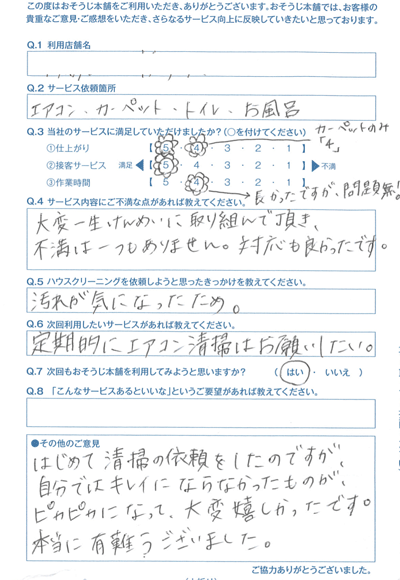 この度はおそうじ本舗をご利用いただき、ありがとうございます。おそうじ本舗では、お客様の
貴重なご意見・ご感想をいただき、さらなるサービス向上に反映していきたいと思っております。
Q.1 利用店舗名
Q.2 サービス依頼箇所
エアコン、カーペット・トイレ、お風呂
Q.3 当社のサービスに満足していただけましたか?(○を付けてください)
カーペットのみ「4」
①仕上がり 【 5 ・ 4 ・ 3 ・ 2 ・ 1 】
②接客サービス 満足 ◀【 5 ・ 4 ・ 3 ・ 2 ・ 1 】▶ 不満
③作業時間 【 5 ・ 4 ・ 3 ・ 2 ・ 1 】
長かったですが、問題無!
Q.4 サービス内容にご不満な点があれば教えてください。
大変一生けんめいに取り組んで頂き、
不満は一つもありません。対応も良かったです。
Q.5 ハウスクリーニングを依頼しようと思ったきっかけを教えてください。
汚れが気になったため。
Q.6 次回利用したいサービスがあれば教えてください。
定期的にエアコン清掃はお願いしたい。
Q.7 次回もおそうじ本舗を利用してみようと思いますか? ( はい ・ いいえ )
Q.8 「こんなサービスあるといいな」というご要望があれば教えてください。
●その他のご意見
はじめて清掃の依頼をしたのですが、
自分ではキレイにならなかったものが、
ピカピカになって、大変嬉しかったです。
本当に有難うございました。
ご協力ありがとうございました。